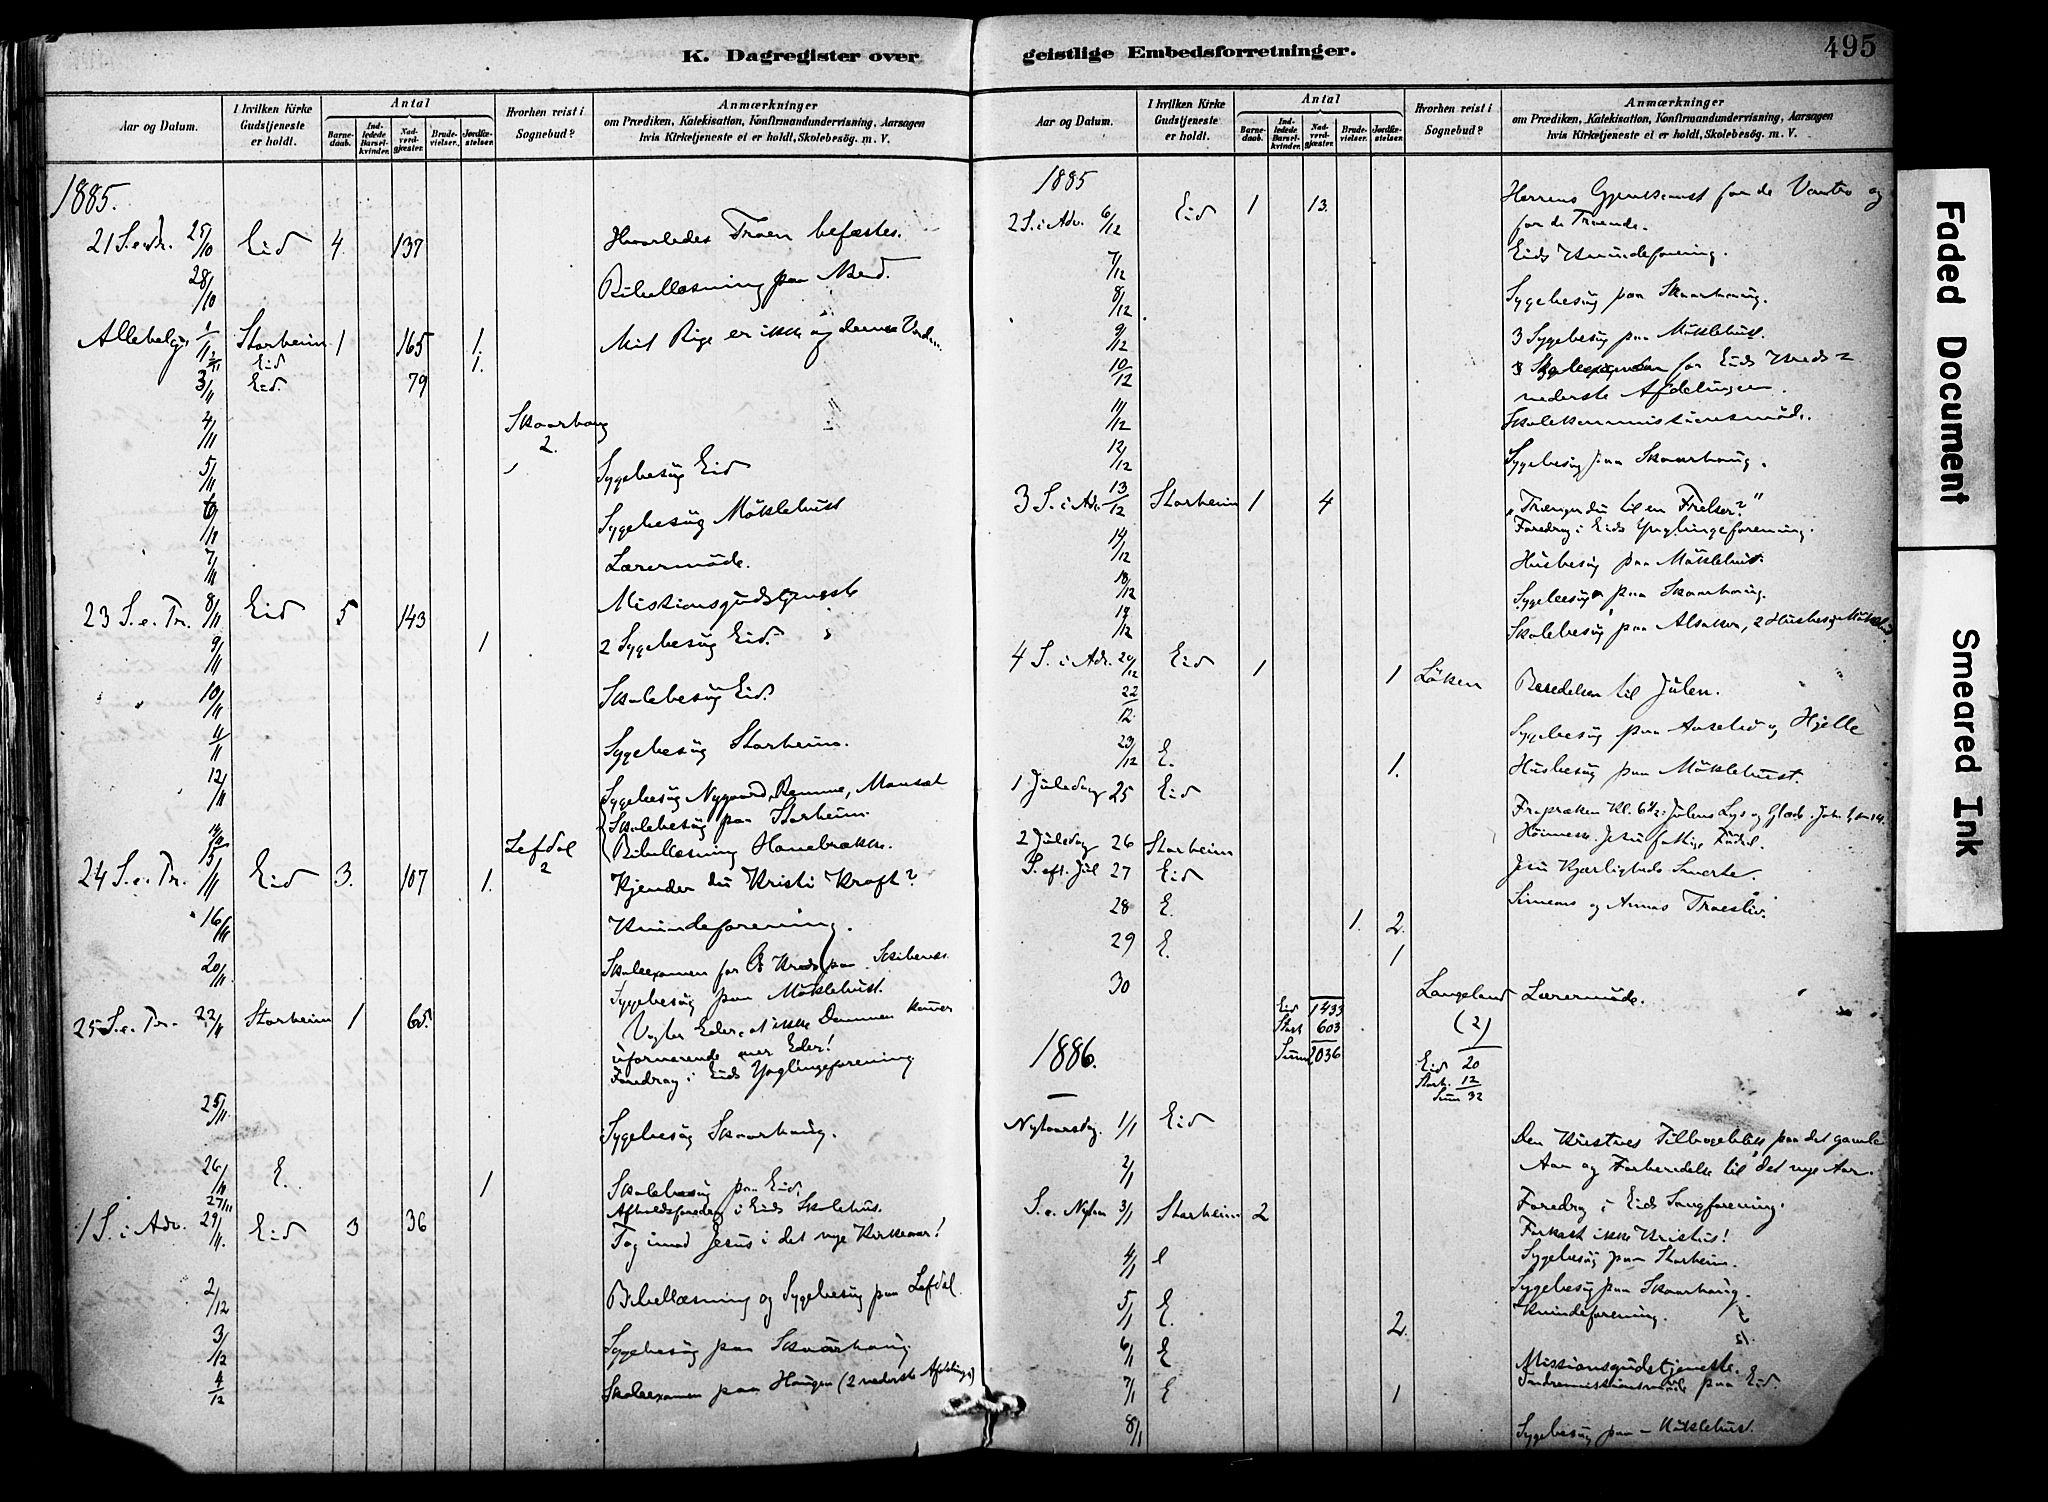 K. Dagregister over geistlige Embedsforretninger.
495
Aar og Datum.
I hvilken Kirke Gudstjeneste er holdt.
Antal
Barnedaab.
Indledede Barselkvinder.
Nadverdgjæster.
Brudevielser.
Jordfæstelser.
Hvorhen reist i Sognebud?
Anmærkninger
om Prædiken, Katekisation, Konfirmandundervisning, Aarsagen
hvis Kirketjeneste ei er holdt, Skolebesøg. m. V.
1885.
21 S.e.Tr. 25/10 Eid 4 137 Hvorledes Troen befæstes.
28/10 Bibellæsning paa
Allehelg. 1/11 Starheim 1 165 1. Mit Rige er ikke af denne Verden.
2/11 Eid 1.
3/11 Eid. 79
4/11 Skaarhaug 2.
5/11 Sygebesøg Eid
6/11 Sygebesøg Möklebust
7/11 Lærermöde.
23 S.e.Tr. 8/11 Eid 5 143 Missionsgudstjeneste
9/11 1 2 Sygebesøg Eid.
10/11 Skolebesøg Eid.
11/11 Sygebesøg Starheim.
12/11 Sygebesøg Nygaard, Remme,
Skolebesøg paa Starheim.
Bibellæsning
24 S.e.Tr. 15/11 Eid 3. 107 1. Lefdal 2 Kjender du Kristi Kraft?
16/11 Kvindeforening.
20/11 Skoleexamen for Kreds paa
Sygebesøg paa Möklebust.
25 S.e.Tr. 22/11 Starheim 1 65. Vogter Eder, at ikke Dommen kommer
uformerende over Eder!
Foredrag i Eids Ynglingeforening
25/11 Sygebesøg Skaarhaug.
26/11 E. 1 Skolebesøg paa Eid.
27/11 Afholdsforedrag i Eids Skolehus.
1 S. i Adv. 29/11 Eid 3 36 Tag imod Jesus i det nye Kirkeaar!
2/12 Bibellæsning og Sygebesøg paa Lefdal.
3/12 Sygebesøg paa Skaarhaug
4/12 Skoleexamen paa Haugen (2 nederste Afdelinger)
Aar og Datum.
I hvilken Kirke Gudstjeneste er holdt.
Antal
Barnedaab.
Indledede Barselkvinder.
Nadverdgjæster.
Brudevielser.
Jordfæstelser.
Hvorhen reist i Sognebud?
Anmærkninger
om Prædiken, Katekisation, Konfirmandundervisning, Aarsagen
hvis Kirketjeneste ei er holdt, Skolebesøg. m. V.
1885
2 S. i Adv. 6/12 Eid 1 13. Herrens Gjenkomst for de Vantro og
for de Troende.
7/12 Eids Kvindeforening.
8/12 Sygebesøg paa Skaarhaug.
9/12 3 Sygebesøg paa Möklebust.
10/12 Skoleexamen for Eids Kreds
nederste Afdelinger.
11/12 Skolekommissionsmöde.
12/12 Sygebesøg paa Skaarhaug.
3 S. i Adv. 13/12 Starheim 1 4 "Trænger du til en Frelser?"
Foredrag i Eids Ynglingeforening.
14/12 Husbesøg paa Möklebust.
18/12 Sygebesøg paa Skaarhaug.
19/12 Skolebesøg paa, 2 Husbesøg Möklebust
4 S. i Adv. 20/12 Eid 1 1 Löken Beredelsen til Julen.
22/12 Sygebesøg paa og Hjelle
23/12 E. 1. Husbesøg paa Möklebust.
1 Juledag 25 Eid Fropræken Kl. 6½: Julens Lys og Glæde. Joh. 1, 1-14.
Höimesse. Jesu fattige Födsel.
2 Juledag 26 Starheim Jesu Kjærligheds Smerte.
S. eft. Jul 27 Eid Simeons og Annas
28 E. 1. 2.
29 E. 1
30 Langeland (2) Lærermöde.
Eid 1433
Stark 603
Summa 2036
Eid 20
Stark. 12
Sum 32
1886.
Nytaarsdag. 1/1 Eid Den Kristnes Tilbageblik paa det gamle
Aar og Forberedelse til det nye Aar.
2/1 Foredrag i Eids Sangforening.
S.e. Nytaar 3/1 Starheim 2 Forkast ikke Kristus!
Sygebesøg paa Starheim.
4/1 Sygebesøg paa Skaarhaug.
5/1 E. 2. Kvindeforening.
6/1 E Missionsgudstjeneste.
7/1 E 1 Indremissionsmöde paa Eid.
8/1 Sygebesøg paa Möklebust.
Faded Document
Smeared Ink